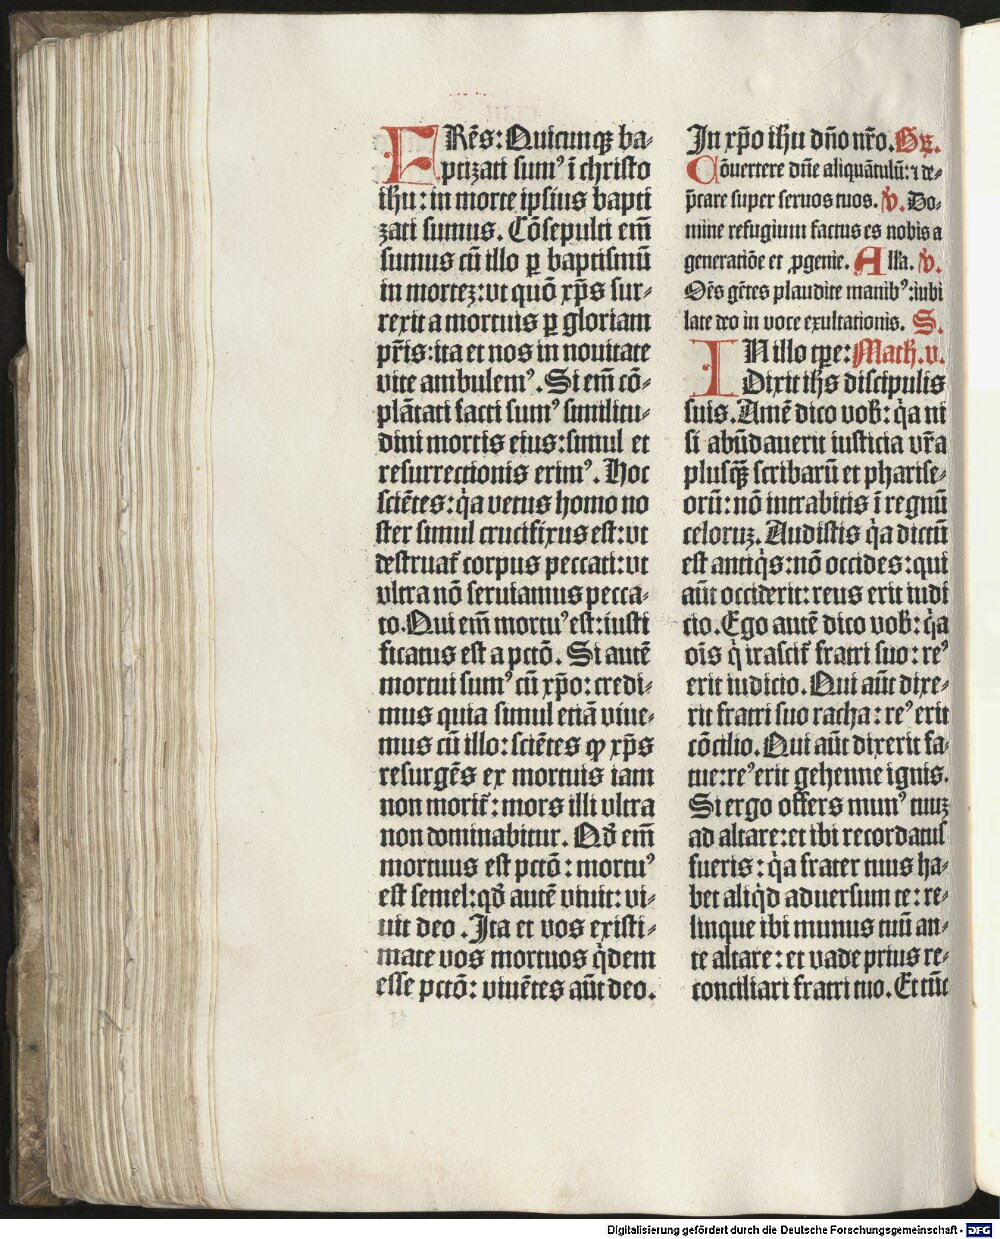 FRēs: Quicunqꝫ ba-
ptizati sumꝰ ī christo
ihu: in morte ipsius bapti
zati sumus. Cōsepulti em̄
sumus cū illo ꝑ baptismū
in mortez: vt quō xp̄s sur-
rexit a mortuis ꝑ gloriam
pr̄is: ita et nos in nouitate
vite ambulemꝰ. Si em̄ cō-
plātati facti sumꝰ similitu-
dini mortis eius: simul et
resurrectionis erimꝰ. Hoc
sciētes: q̇a vetus homo no
ster simul crucifixus est: vt
destruat᷑ corpus peccati: vt
vltra nō seruiamus pecca-
to. Qui em̄ mortuꝰ est: iusti
ficatus est a pctō. Si autē
mortui sumꝰ cū xp̄o: credi-
mus quia simul etiā viue-
mus cū illo: sciētes ꝙ xp̄s
resurgēs ex mortuis iam
non morit᷑: mors illi vltra
non dominabitur. Qď em̄
mortuus est pctō: mortuꝰ
est semel: qď autē viuit: vi-
uit deo. Ita et vos existi-
mate vos mortuos q̇dem
esse pctō: viuētes aūt deo.
In xp̄o ihu dn̄o nr̄o. Gr̄.
Cōuertere dn̄e aliquātulū: ⁊ de-
p̄care super seruos tuos. v̄. Do-
mine refugium factus es nobis a
generatiōe et ꝓgenie. Alľa. v̄.
Oēs gētes plaudite manibꝰ: iubi
late deo in voce exultationis. S.
IN illo tꝑe: Math. v.
Dixit ihs discipulis
suis. Amē dico vob̄: q̇a ni
si abūdauerit iusticia vr̄a
plusqꝫ scribarū et pharise-
orū: nō intrabitis ī regnū
celoruꝫ. Audistis q̇a dictū
est antiq̇s: nō occides: qui
aūt occiderit: reus erit iudi
cio. Ego autē dico vob̄: q̇a
oīs q̇ irascit᷑ fratri suo: reꝰ
erit iudicio. Qui aūt dixe-
rit fratri suo racha: reꝰ erit
cōcilio. Qui aūt dixerit fa-
tue: reꝰ erit gehenne ignis.
Si ergo offers munꝰ tuuꝫ
ad altare: et ibi recordatus
fueris: q̇a frater tuus ha-
bet aliq̇d aduersum te: re-
linque ibi munus tuū an-
te altare: et vade prius re-
conciliari fratri tuo. Et tūc
Digitalisierung gefördert durch die Deutsche Forschungsgemeinschaft - DFG